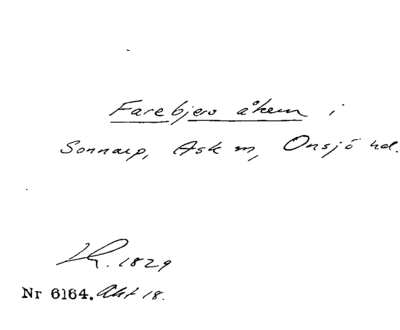 Farebjers åkern i
Sonnarp, Ask sn, Onsjö hd.
LR. 1829
Nr 6164. Akt 18.